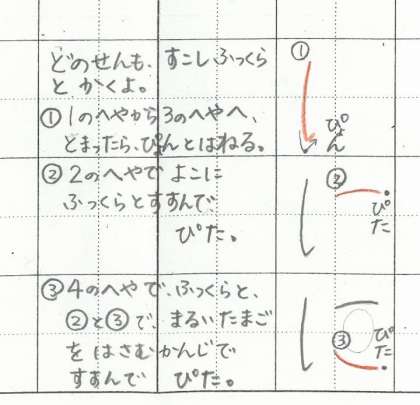 どのせんも、すこしふっくら
とかくよ。
①1のへやから3のへやへ、
とまったら、ぴょんとはねる。
②2のへやでよこに
ふっくらとすすんで、
ぴた。
③4のへやで、ふっくらと、
②と③で、まるいたまご
をはさむかんじで
すすんで ぴた。
①
ぴょん
②
ぴた
③
ぴた